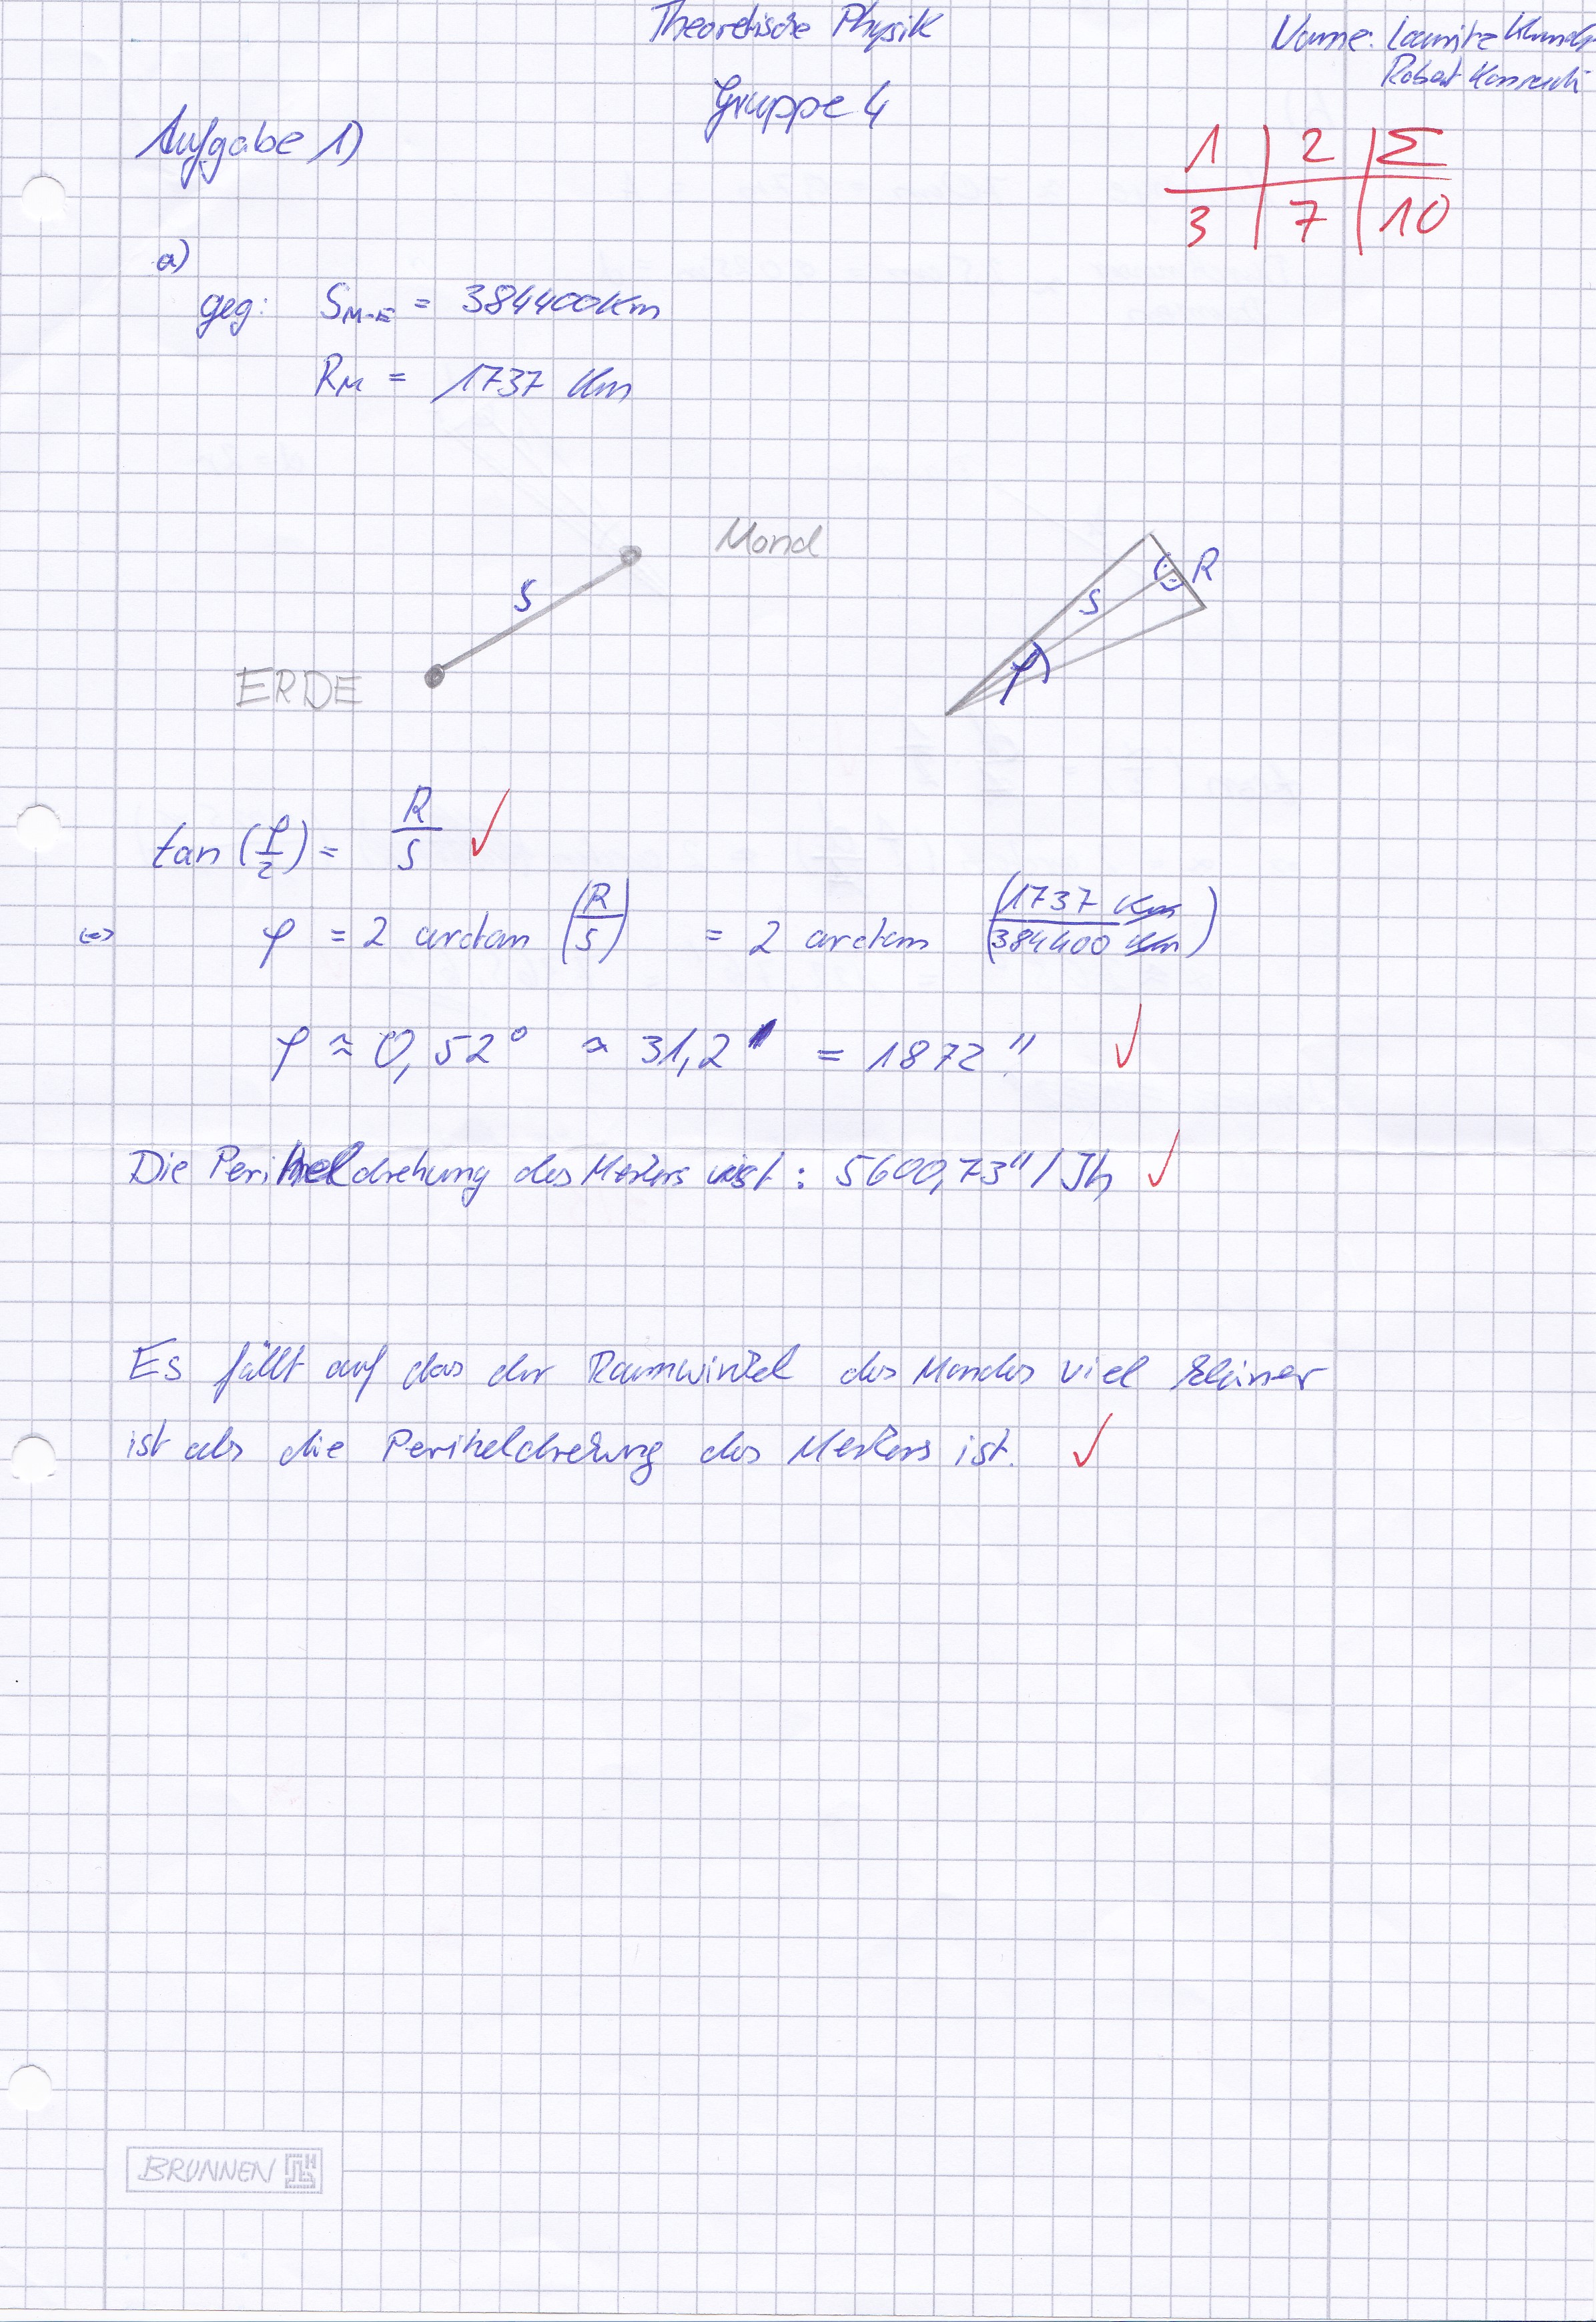 Theoretische Physik
Name:
Robert
Gruppe 4
Aufgabe 1)
1 | 2 | Σ
3 | 7 | 10
a)
geg: S_M-E = 384400Km
R_M = 1737 Km
Mond
S
ERDE
S R
φ
tan (φ/2) = R/S ✓
<=> φ = 2 arctan (R/S) = 2 arctan (1737 Km/384400 Km)
φ ≈ 0,52° ≈ 31,2' = 1872" ✓
Die Periheldrehung des Merkurs ist : 5600,73"/Jh ✓
Es fällt auf das der Raumwinkel des Mondes viel kleiner
ist als die Periheldrehung des Merkurs ist. ✓
BRUNNEN